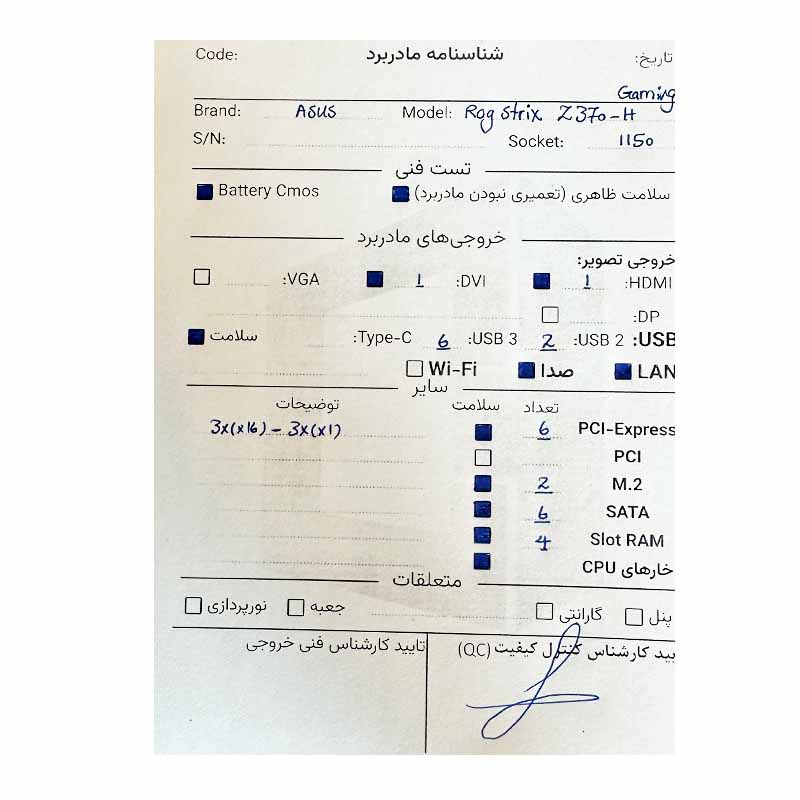 Code: شناسنامه مادربرد تاریخ:
Gaming
Brand: ASUS Model: Rog Strix Z370-H
S/N: Socket: 1150
تست فنی
سلامت ظاهری (تعمیری نبودن مادربرد) Battery Cmos
خروجی‌های مادربرد
خروجی تصویر:
HDMI: 1 DVI: 1 VGA:
DP:
USB: USB 2: 2 USB 3: 6 Type-C: سلامت
LAN صدا Wi-Fi
سایر
تعداد سلامت توضیحات
PCI-Express 6 3x(x16) - 3x(x1)
PCI
M.2 2
SATA 6
Slot RAM 4
خارهای CPU
متعلقات
پنل گارانتی جعبه نورپردازی
یید کارشناس کنترل کیفیت (QC) تایید کارشناس فنی خروجی